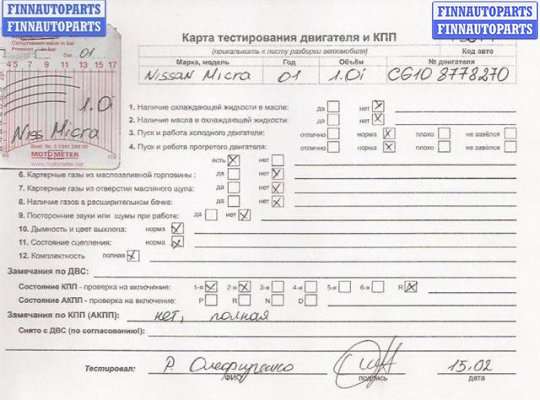 FINNAUTOPARTS
FINNAUTOPARTS
FINNAUTOPARTS
FINNAUTOPARTS
Карта тестирования двигателя и КПП
(прикалывать к листу разборки автомобиля)
Код авто
Марка, модель Год Объём № двигателя
Nissan Micra 01 1.0i CG10 8778270
01
4 5 7 9 11 13 15 17
1.0i
Niss Micra
MOTOMETER
1. Наличие охлаждающей жидкости в масле: да нет
2. Наличие масла в охлаждающей жидкости: да нет
3. Пуск и работа холодного двигателя: отлично норма плохо не завёлся
4. Пуск и работа прогретого двигателя: отлично норма плохо не завёлся
есть нет
6. Картерные газы из маслозаливной горловины: да нет
7. Картерные газы из отверстия масляного щупа: да нет
8. Наличие газов в расширительном бачке: да нет
9. Посторонние звуки или шумы при работе: да нет
10. Дымность и цвет выхлопа: норма
11. Состояние сцепления: норма
12. Комплектность полная
Замечания по ДВС:
Состояние КПП - проверка на включение: 1-я 2-я 3-я 4-я 5-я 6-я R
Состояние АКПП - проверка на включение: P R N D
Замечания по КПП (АКПП): нет, полная
Снято с ДВС (по согласованию!):
Тестировал: Р. 15.02
/ФИО/ подпись дата